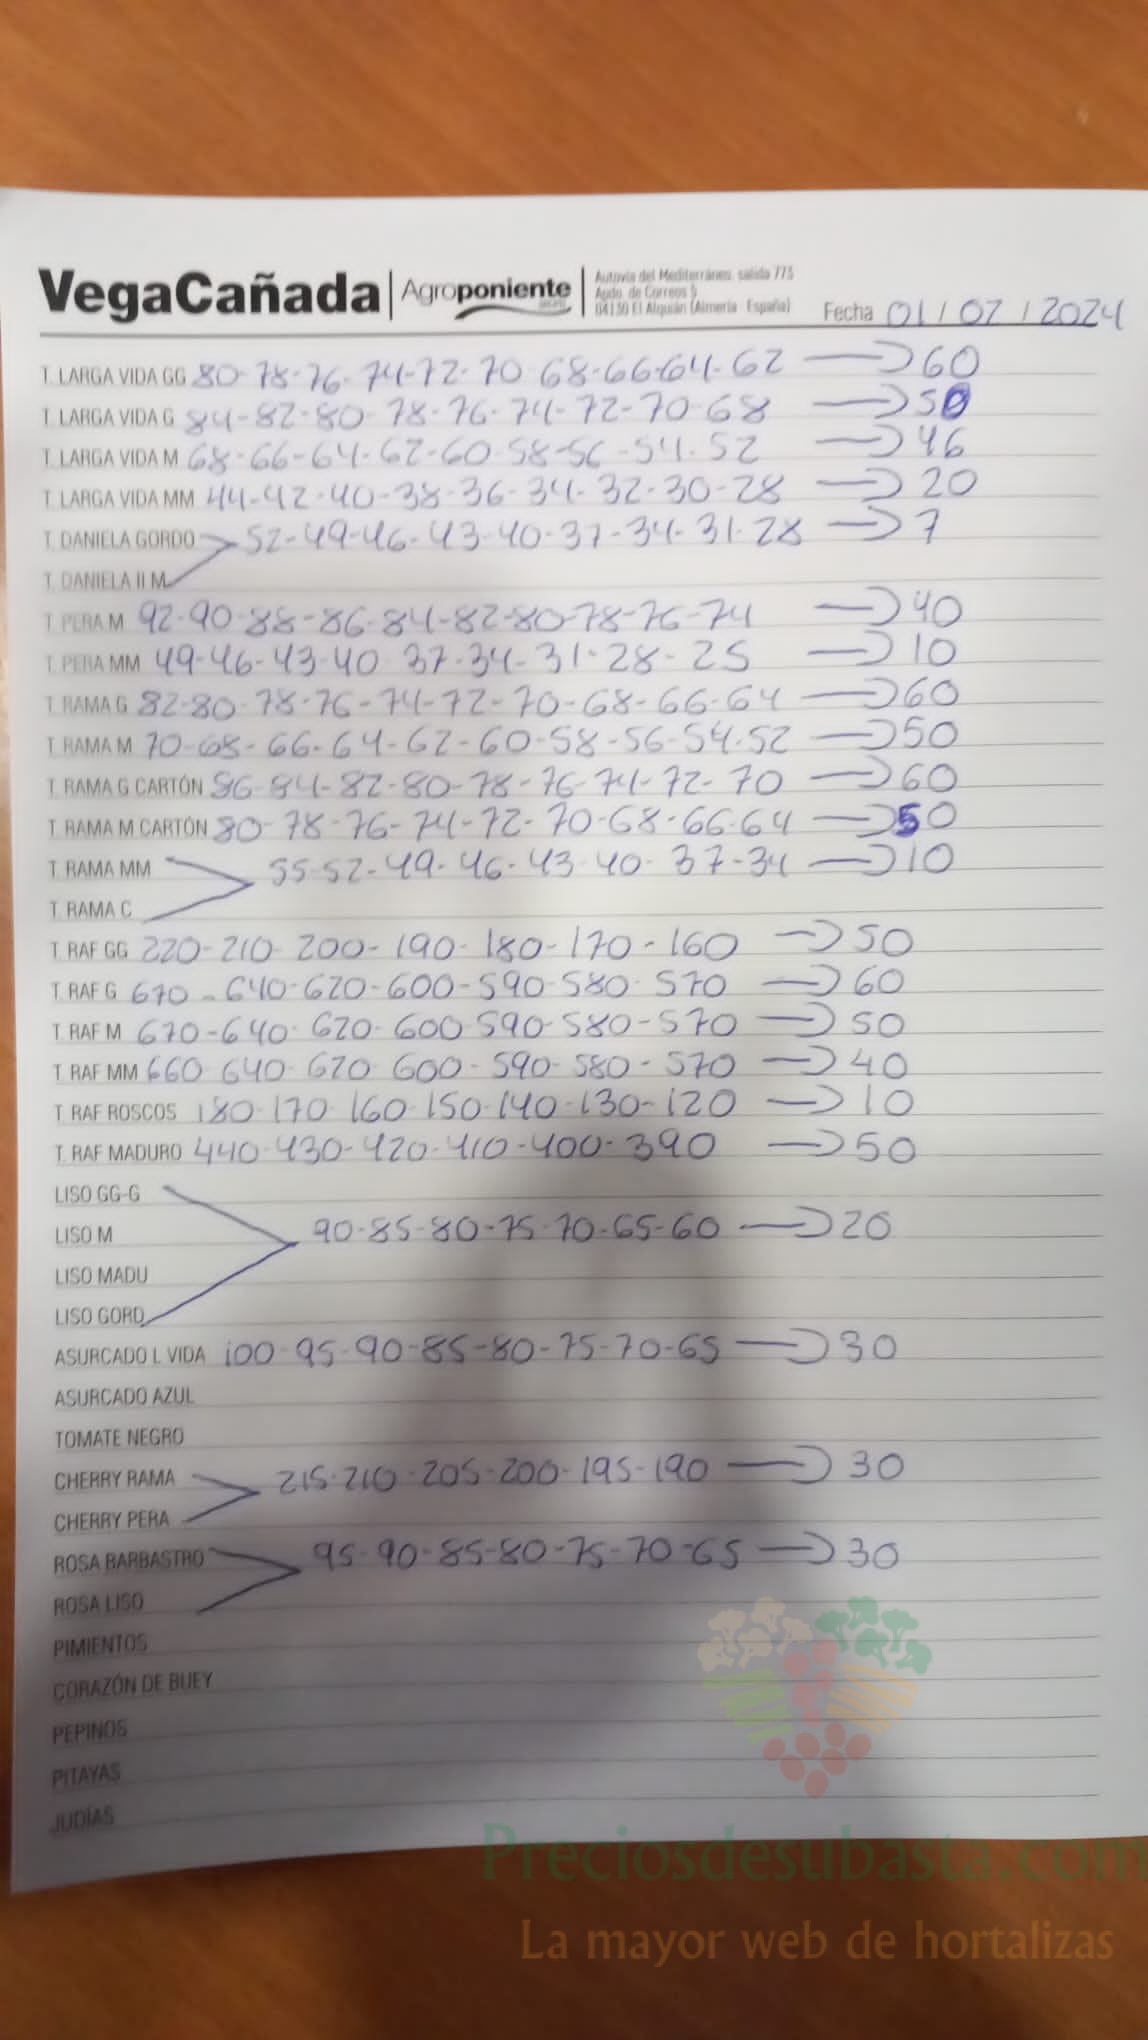 VegaCañada | Agroponiente
Autovía del Mediterráneo, salida 775
Apdo. de Correos 5
04130 El Alquián (Almería España)
Fecha 01/02/2024
T. LARGA VIDA GG 80-78-76-74-72-70-68-66-64-62 → 60
T. LARGA VIDA G 84-82-80-78-76-74-72-70-68 → 50
T. LARGA VIDA M 68-66-64-62-60-58-56-54-52 → 46
T. LARGA VIDA MM 44-42-40-38-36-34-32-30-28 → 20
T. DANIELA GORDO 52-49-46-43-40-37-34-31-28 → 7
T. DANIELA II M
T. PERA M 92-90-88-86-84-82-80-78-76-74 → 40
T. PERA MM 49-46-43-40-37-34-31-28-25 → 10
T. RAMA G 82-80-78-76-74-72-70-68-66-64 → 60
T. RAMA M 70-68-66-64-62-60-58-56-54-52 → 50
T. RAMA G CARTÓN 86-84-82-80-78-76-74-72-70 → 60
T. RAMA M CARTÓN 80-78-76-74-72-70-68-66-64 → 50
T. RAMA MM 55-52-49-46-43-40-37-34 → 10
T. RAMA C
T. RAF GG 220-210-200-190-180-170-160 → 50
T. RAF G 670-640-620-600-590-580-570 → 60
T. RAF M 670-640-620-600-590-580-570 → 50
T. RAF MM 660-640-620-600-590-580-570 → 40
T. RAF ROSCOS 180-170-160-150-140-130-120 → 10
T. RAF MADURO 440-430-420-410-400-390 → 50
LISO GG-G
LISO M 90-85-80-75-70-65-60 → 20
LISO MADU
LISO GORD
ASURCADO L VIDA 100-95-90-85-80-75-70-65 → 30
ASURCADO AZUL
TOMATE NEGRO
CHERRY RAMA 215-210-205-200-195-190 → 30
CHERRY PERA
ROSA BARBASTRO 95-90-85-80-75-70-65 → 30
ROSA LISO
PIMIENTOS
CORAZÓN DE BUEY
PEPINOS
PITAYAS
JUDÍAS
Preciosdesubasta.com
La mayor web de hortalizas